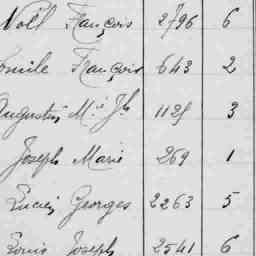 Noël François 2796 6
Emile François 643 2
Augustin M.ie Jh 1125 3
Joseph Marie 269 1
Lucien Georges 2263 5
Louis Joseph 2541 6